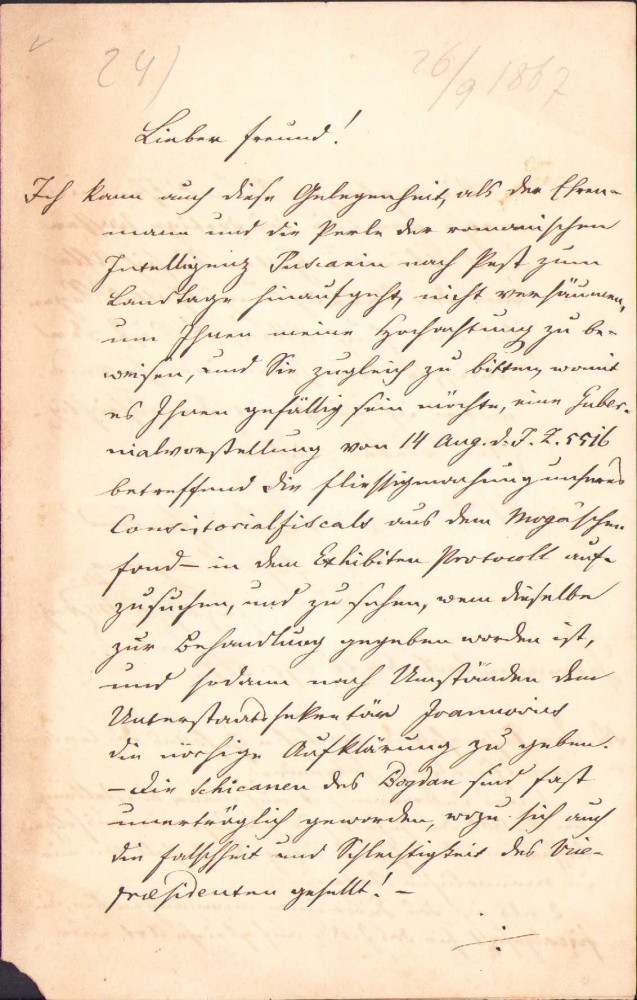 24)
26/9 1867
Lieber Freund!
Ich kann auch diese Gelegenheit, als der Ehren-
mann und die Perle der romanischen
Intelligenz Puscariu nach Pest zum
Landtage hinaufgeht, nicht versäumen,
um Ihnen meine Hochachtung zu be-
weisen, und Sie zugleich zu bitten, womit
es Ihnen gefällig sein möchte, eine Guber-
nialvorstellung von 14 Aug. d. J. Z. 5516
betreffend die Fliessigmachung unseres
Consistorialfiscals aus dem Mogaschen
fond – in dem Exhibiten Protocoll auf-
zusuchen, und zu sehen, wem dieselbe
zur Behandlung gegeben worden ist,
und sodann nach Umständen dem
Unterstaatssekretär Joannovics
die nöthige Aufklärung zu geben.
– Die Schicanen des Bogdan sind fast
unerträglich geworden, wozu sich auch
die Falschheit und Schlechtigkeit des Vice-
praesidenten gesellt! –